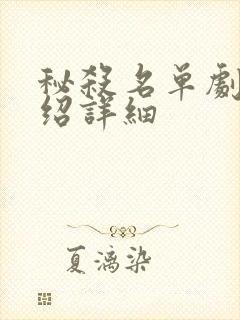 秘殺名单劇
绍詳細
夏漓染